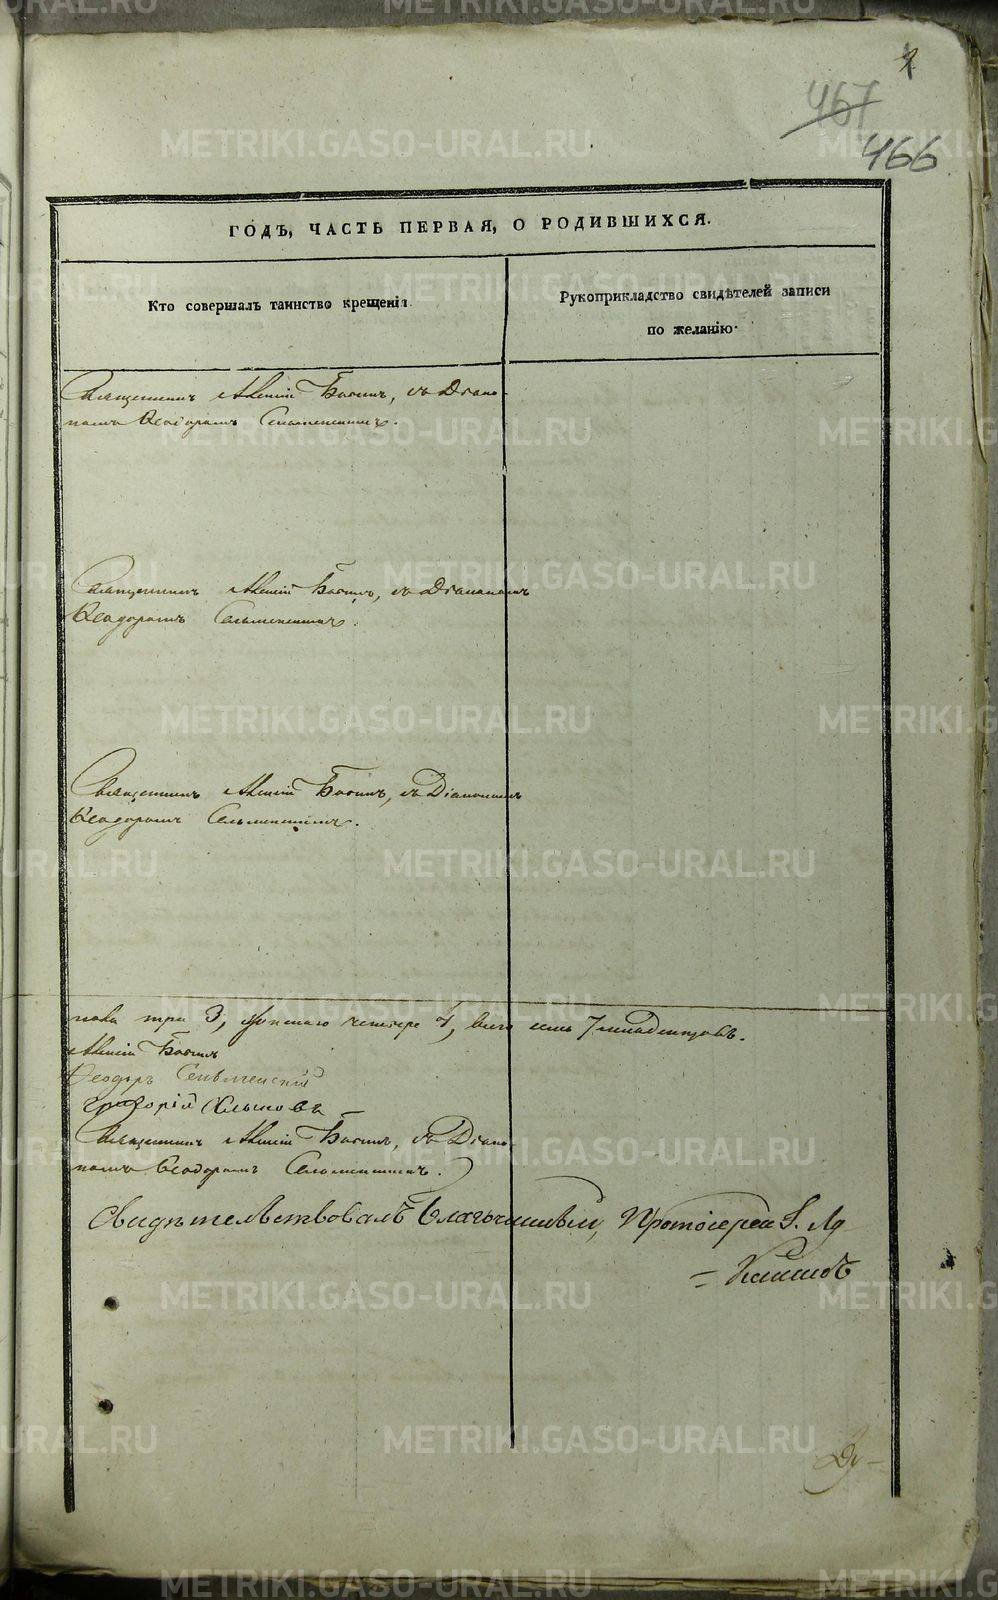 467
466
ГОДЪ, ЧАСТЬ ПЕРВАЯ, О РОДИВШИХСЯ.
Кто совершалъ таинство крещенія.
Рукоприкладство свидѣтелей записи
по желанію.
Священникъ Алексій Басинъ, съ Діако-
номъ Ѳеодоромъ
Священникъ Алексій Басинъ, съ Діакономъ
Ѳеодоромъ
Священникъ Алексій Басинъ, съ Діакономъ
Ѳеодоромъ
пола три 3, женскаго четыре 4, всего семь 7 младенцовъ.
Алексій Басинъ
Ѳеодоръ
Григорій
Священникъ Алексій Басинъ, съ Діако-
номъ Ѳеодоромъ
Свидѣтельствовалъ Благочинный, Протоіерей
METRIKI.GASO-URAL.RU